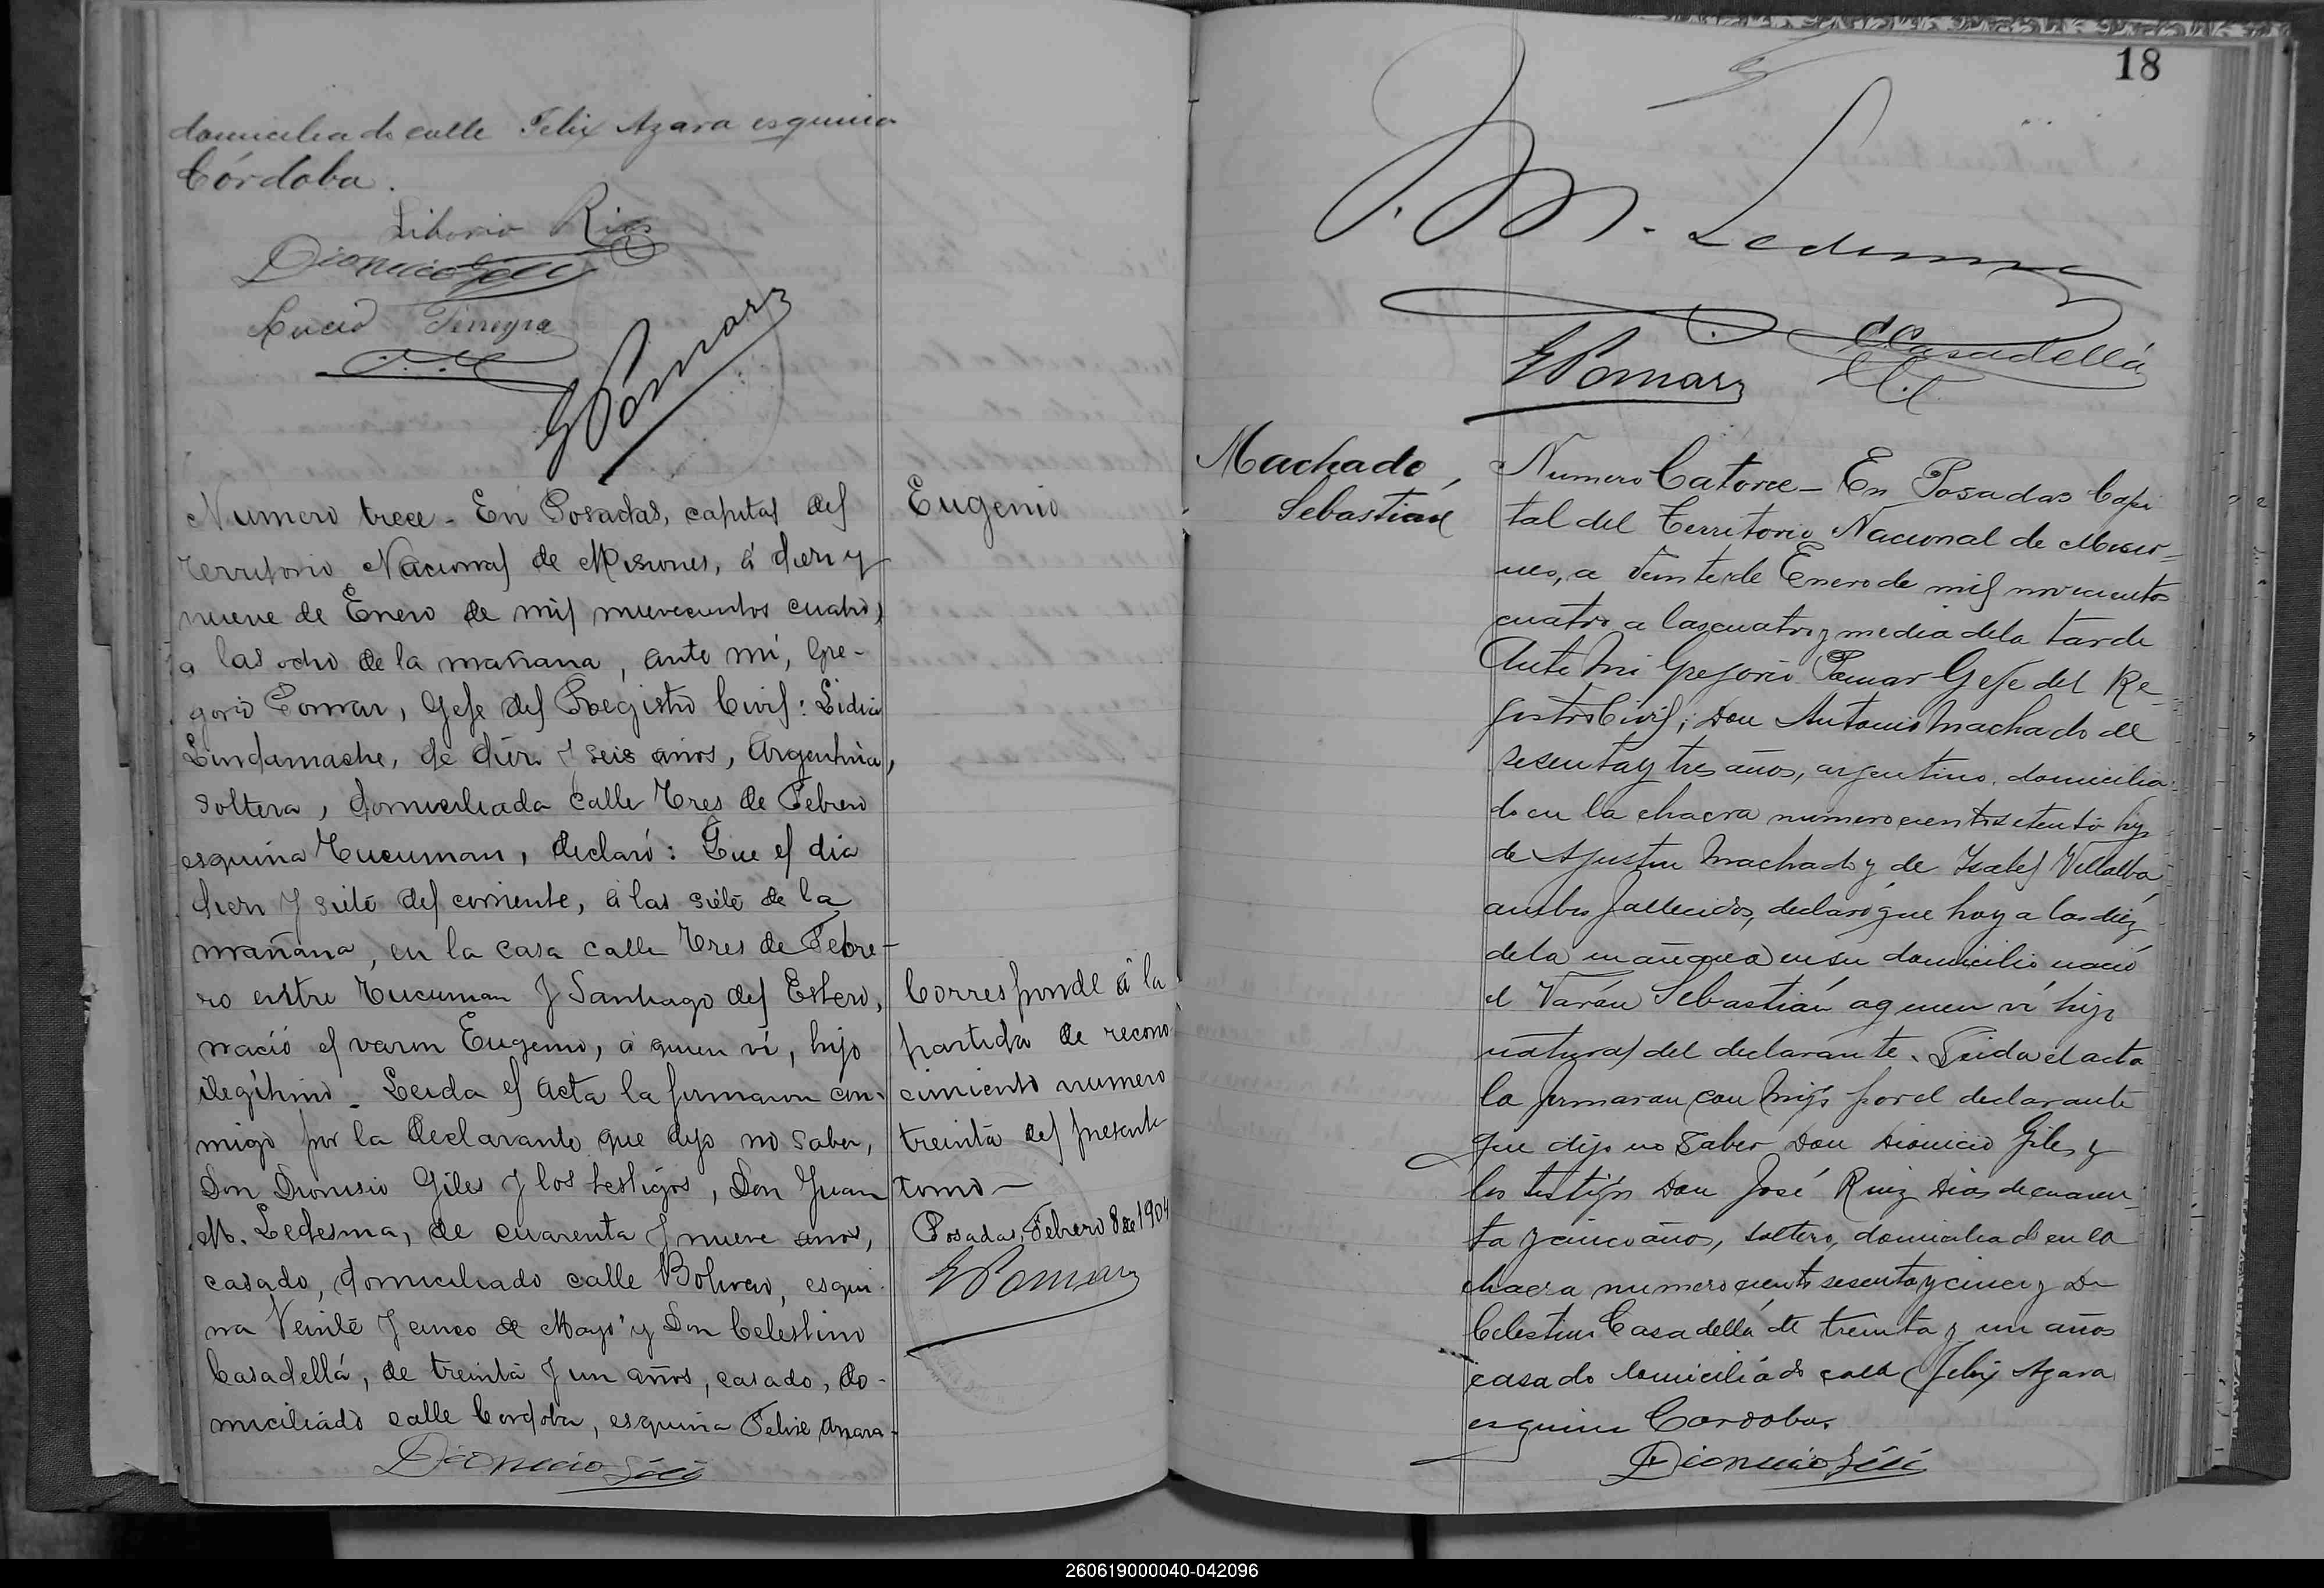 domiciliado calle Felix Azara esquina
Córdoba.
Liborio Rios
Dionicio Giles
Lucio Fereyra
GPomar
Numero trece - En Posadas, capital del
Territorio Nacional de Misiones, á diez y
nueve de Enero de mil novecientos cuatro,
a las ocho de la mañana, ante mí, Gre-
gorio Pomar, Gefe del Registro Civil: Lidia
Lindamashe, de diez y seis años, Argentina,
soltera, domiciliada calle Tres de Febrero
esquina Tucuman, declaró: Que el dia
diez y siete del corriente, á las siete de la
mañana, en la casa calle Tres de Febre-
ro entre Tucuman y Santiago del Estero,
nació el varon Eugenio, á quien ví, hijo
ilegítimo. Leida el acta la firmaron con-
migo por la declarante que dijo no saber,
Don Dionisio Giles y los testigos, Don Juan
M. Ledesma, de cuarenta y nueve años,
casado, domiciliado calle Bolivar, esqui-
na Veinte y cinco de Mayo y Don Celestino
Casadellá, de treinta y un años, casado, do-
miciliado calle Cordoba, esquina Felix Azara-
Dionicio Giles
Eugenio
Corresponde á la
partida de recono
cimiento numero
treinta del presente
tomo-
Posadas, Febrero 8 de 1904
GPomar
18
J. M. Ledesma
CCasadellá
GPomar
Machado,
Sebastian
Numero Catorce - En Posadas Capi
tal del Territorio Nacional de Misio-
nes, a veinte de Enero de mil novecientos
cuatro a las cuatro y media de la tarde
Ante mi Gregorio Pomar Gefe del Re-
gistro Civil, Don Antonio Machado de
sesenta y tres años, argentino, domicilia-
do en la chacra numero ciento setenta hijo
de Agustin Machado y de Isabel Villalba,
ambos fallecidos, declaró que hoy a las diez
de la mañana en su domicilio nació
el Varón Sebastián a quien ví hijo
natural del declarante. Leida el acta
la firmaron conmigo por el declarante
que dijo no saber Don Dionicio Giles y
los testigos Don José Ruiz Dias de cuaren-
ta y cinco años, soltero, domiciliado en la
chacra numero ciento sesenta y cinco y Dn
Celestino Casadellá de treinta y un años
casado domiciliádo calle Felix Azara
esquina Cordoba.
Dionicio Giles
260619000040-042096